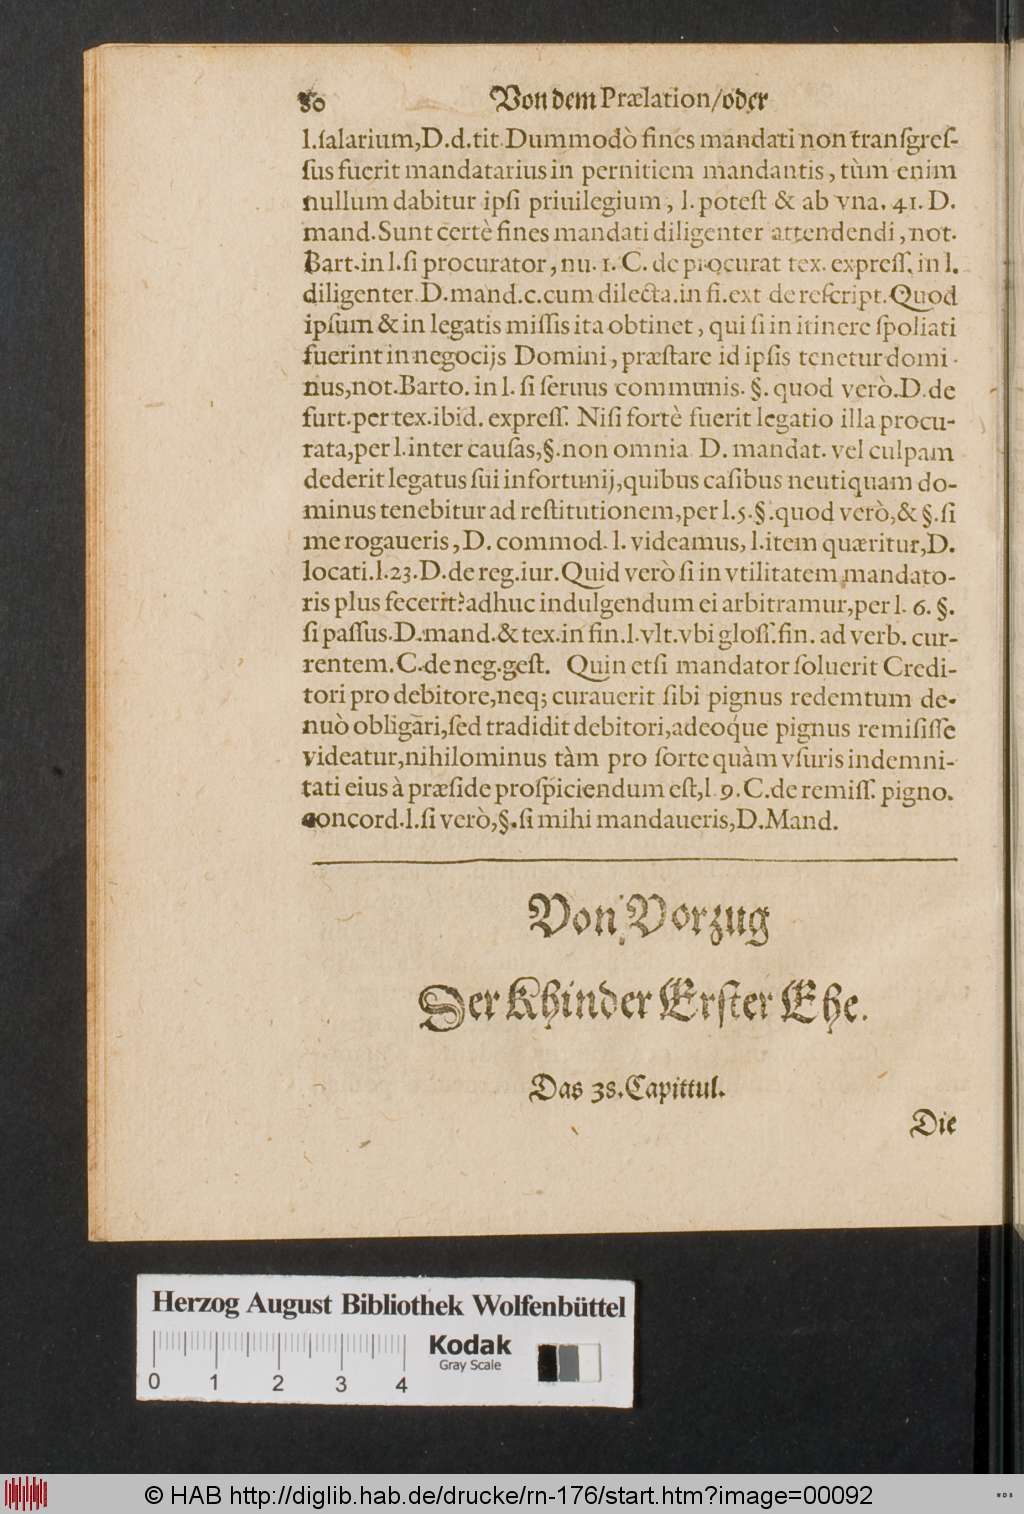 80 Von dem Prælation/oder
l.ſalarium,D.d.tit.Dummodò fines mandati non tranſgreſ-
ſus fuerit mandatarius in pernitiem mandantis, tùm enim
nullum dabitur ipſi priuilegium, l. poteſt & ab vna. 41. D.
mand.Sunt certè fines mandati diligenter attendendi, not.
Bart.in l.ſi procurator, nu. 1. C. de procurat tex. expreſſ. in l.
diligenter.D.mand.c.cum dilecta.in fi.ext de reſcript.Quod
ipſum & in legatis miſſis ita obtinet, qui ſi in itinere ſpoliati
fuerint in negocijs Domini, præſtare id ipſis tenetur domi-
nus,not.Barto. in l. ſi ſeruus communis. §. quod verò.D.de
furt.per tex.ibid. expreſſ. Niſi fortè fuerit legatio illa procu-
rata,per l.inter cauſas,§.non omnia D. mandat. vel culpam
dederit legatus ſui infortunij,quibus caſibus neutiquam do-
minus tenebitur ad reſtitutionem,per l.5.§.quod verò,& §.ſi
me rogaueris, D. commod. l. videamus, l.item quæritur,D.
locati.l.23.D.de reg.iur.Quid verò ſi in vtilitatem mandato-
ris plus fecerit?adhuc indulgendum ei arbitramur,per l. 6. §.
ſi paſſus.D.mand.& tex.in fin.l.vlt.vbi gloſſ.fin. ad verb. cur-
rentem.C.de neg.geſt. Quin etſi mandator ſoluerit Credi-
tori pro debitore,neq; curauerit ſibi pignus redemtum de-
nuò obligari,ſed tradidit debitori,adeoq́ue pignus remiſiſſe
videatur,nihilominus tàm pro ſorte quàm vſuris indemni-
tati eius à præſide proſpiciendum eſt,l.9.C.de remiſſ. pigno.
concord.l.ſi verò,§.ſi mihi mandaueris,D.Mand.
Von Vorzug
Der Khinder Erſter Ehe.
Das 38.Capittul.
Die
Herzog August Bibliothek Wolfenbüttel
Kodak
Gray Scale
0 1 2 3 4
© HAB http://diglib.hab.de/drucke/rn-176/start.htm?image=00092